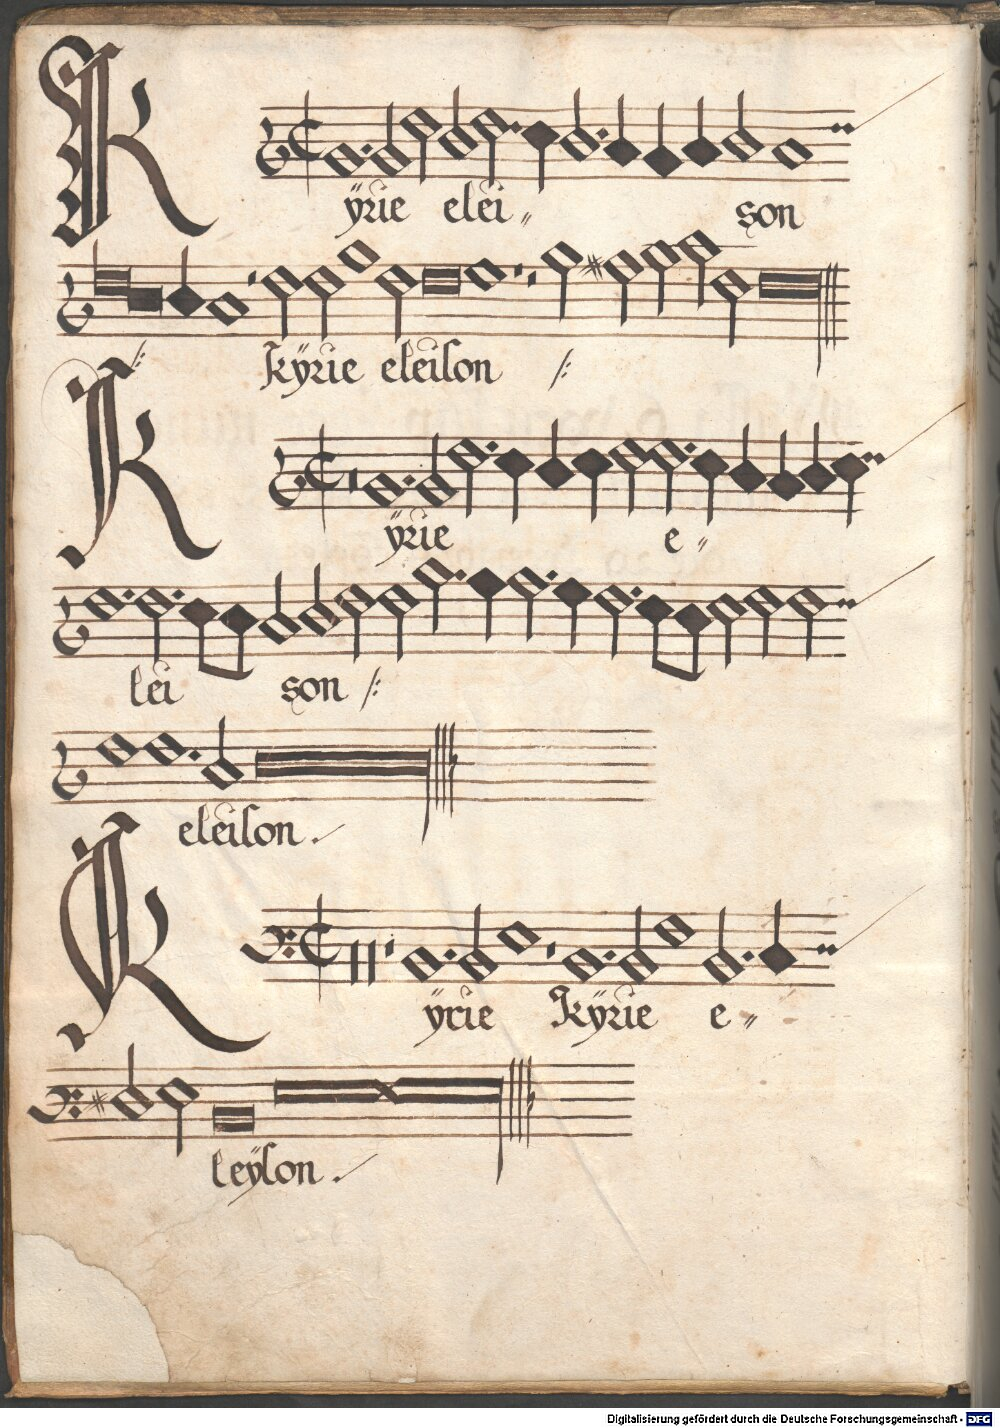 Kÿrie elei〃 son
/: Kÿrie eleiſon /:
Kÿrie e〃
lei son /:
eleiſon.
Kÿrie Kÿrie e〃
leÿſon.
Digitalisierung gefördert durch die Deutsche Forschungsgemeinschaft - DFG